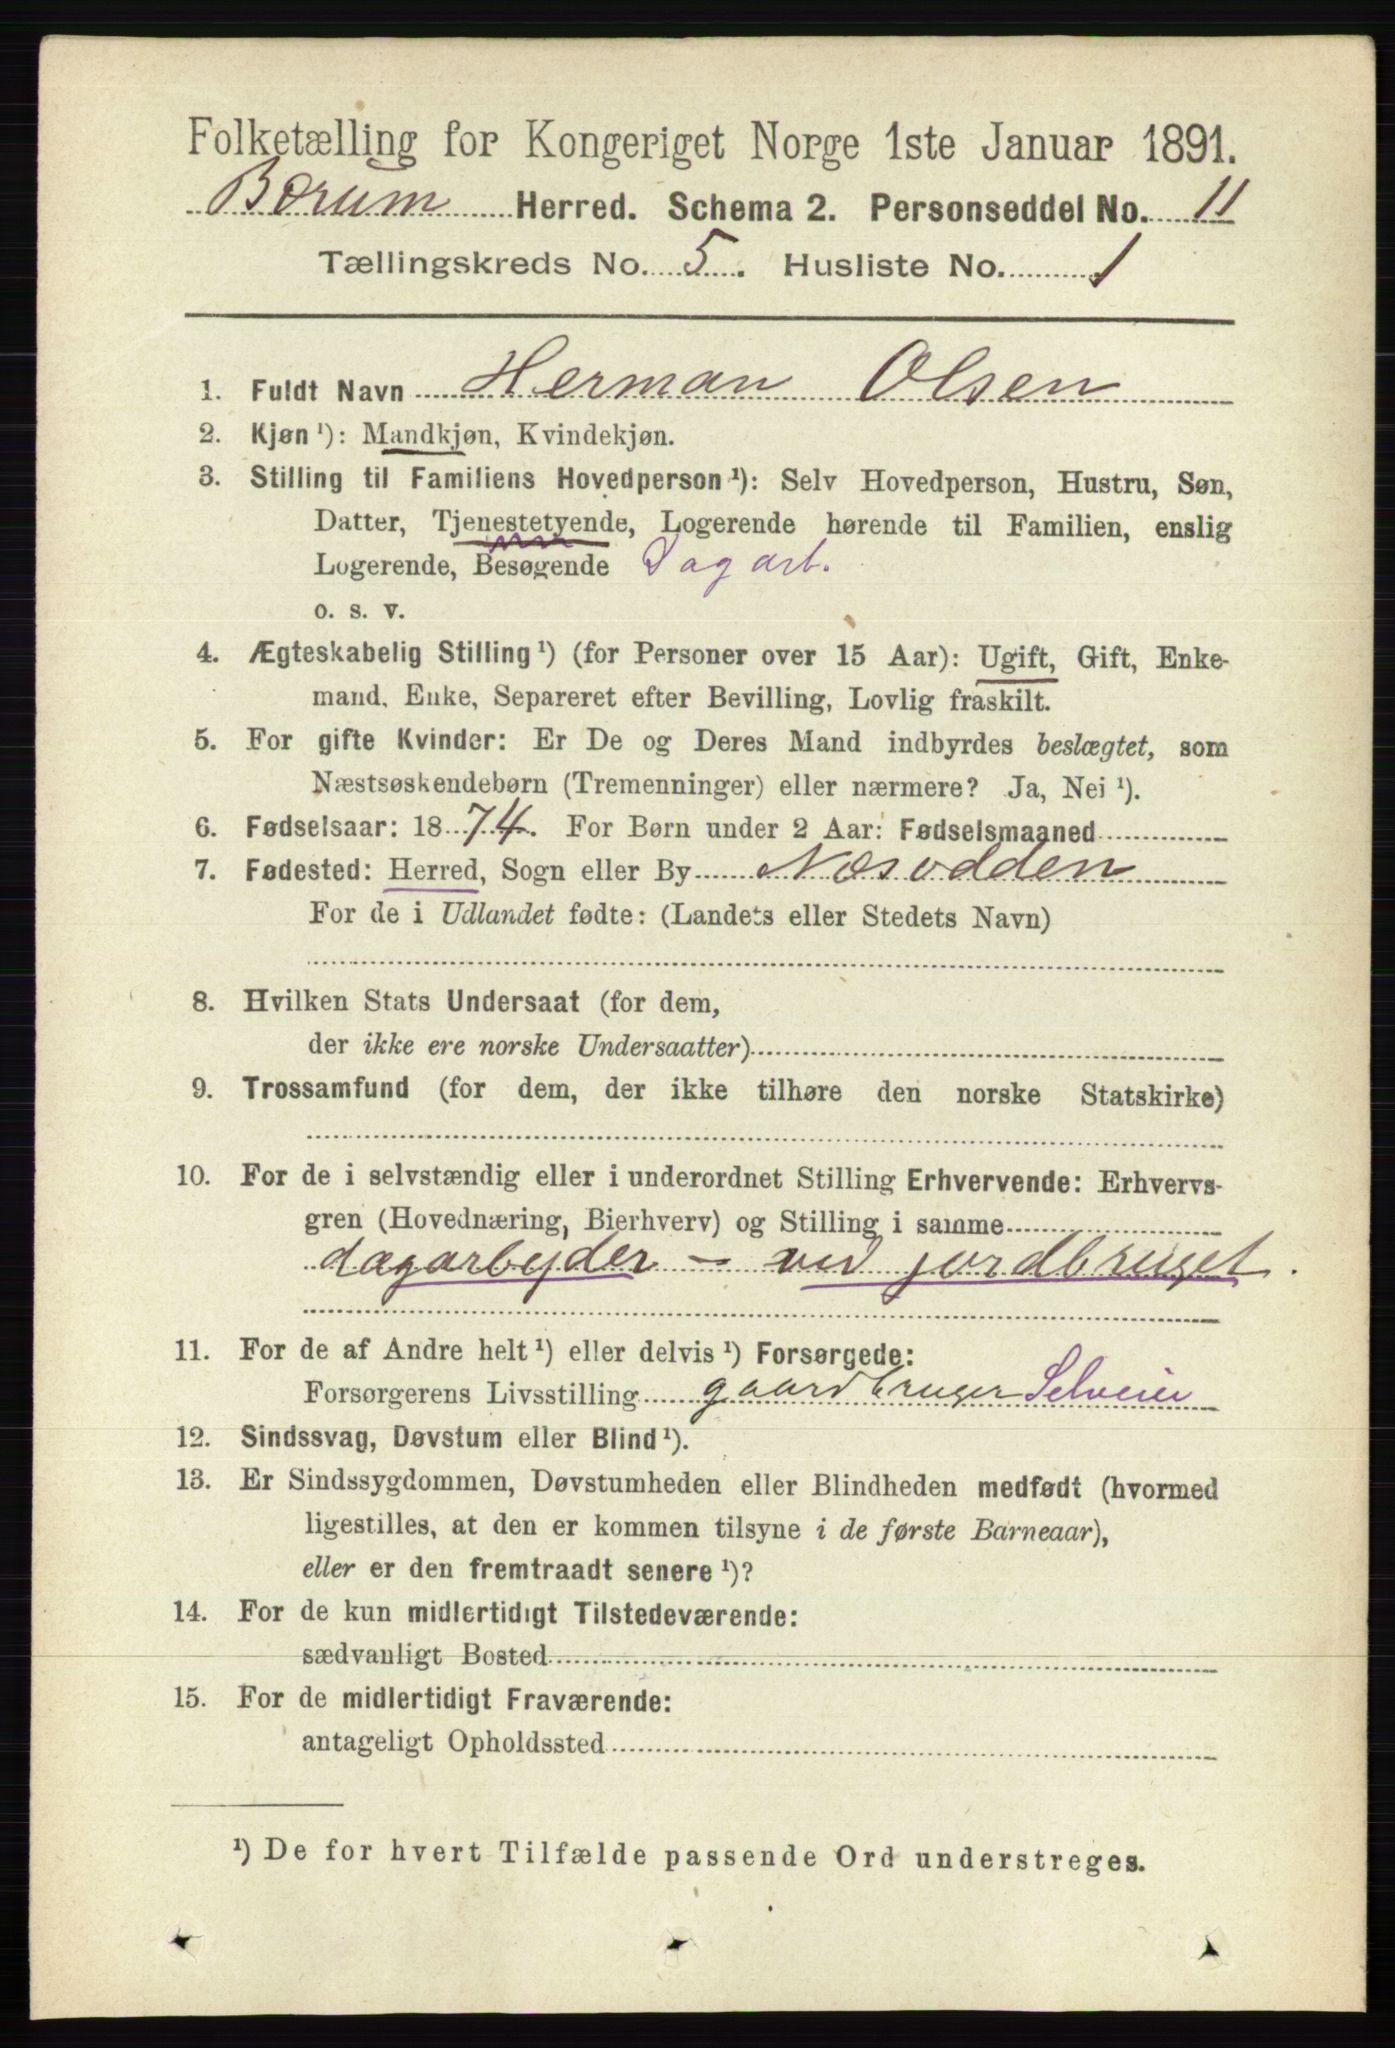 Folketælling for Kongeriget Norge 1ste Januar 1891.
Bærum Herred. Schema 2. Personseddel No. 11
Tællingskreds No. 5. Husliste No. 1
1. Fuldt Navn Herman Olsen
2. Kjøn ¹): Mandkjøn, Kvindekjøn.
3. Stilling til Familiens Hovedperson ¹): Selv Hovedperson, Hustru, Søn,
Datter, Tjenestetyende, Logerende hørende til Familien, enslig
Logerende, Besøgende Dagarb.
o. s. v.
4. Ægteskabelig Stilling ¹) (for Personer over 15 Aar): Ugift, Gift, Enke-
mand, Enke, Separeret efter Bevilling, Lovlig fraskilt.
5. For gifte Kvinder: Er De og Deres Mand indbyrdes beslægtet, som
Næstsøskendebørn (Tremenninger) eller nærmere? Ja, Nei ¹).
6. Fødselsaar: 1874. For Børn under 2 Aar: Fødselsmaaned
7. Fødested: Herred, Sogn eller By Næsodden
For de i Udlandet fødte: (Landets eller Stedets Navn)
8. Hvilken Stats Undersaat (for dem,
der ikke ere norske Undersaatter)
9. Trossamfund (for dem, der ikke tilhøre den norske Statskirke)
10. For de i selvstændig eller i underordnet Stilling Erhvervende: Erhvervs-
gren (Hovednæring, Bierhverv) og Stilling i samme
dagarbeyder - ved jordbruget.
11. For de af Andre helt ¹) eller delvis ¹) Forsørgede:
Forsørgerens Livsstilling gaardbruger Selveier
12. Sindssvag, Døvstum eller Blind ¹).
13. Er Sindssygdommen, Døvstumheden eller Blindheden medfødt (hvormed
ligestilles, at den er kommen tilsyne i de første Barneaar),
eller er den fremtraadt senere ¹)?
14. For de kun midlertidigt Tilstedeværende:
sædvanligt Bosted
15. For de midlertidigt Fraværende:
antageligt Opholdssted
¹) De for hvert Tilfælde passende Ord understreges.